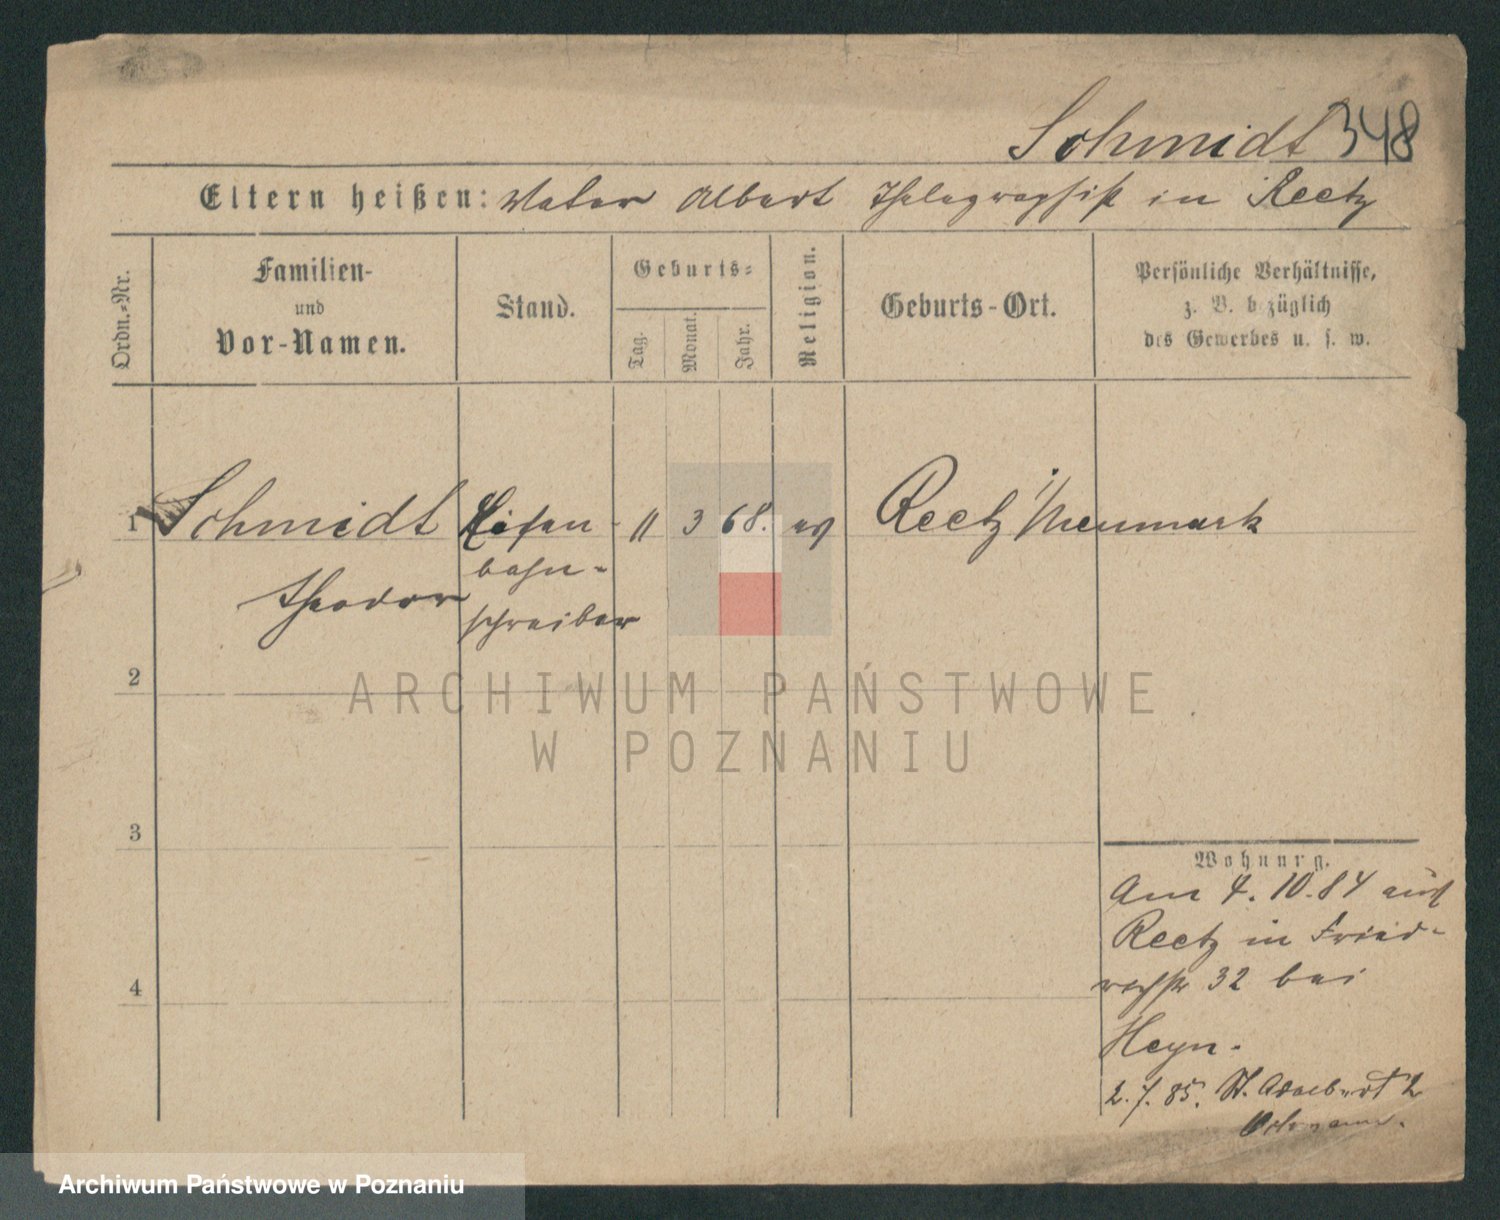 Schmidt 348
Eltern heißen: Vater Albert Thelegraphist in Reetz
Ordn.-Nr.
Familien-
und
Vor-Namen.
Stand.
Geburts-
Tag.
Monat.
Jahr.
Religion.
Geburts-Ort.
Persönliche Verhältnisse,
z. B. bezüglich
des Gewerbes u. s. w.
1 Schmidt Eisen- 11 3 68. ev Reetz i/Neumark
Theodor bahn-
schreiber
2
ARCHIWUM PAŃSTWOWE
W POZNANIU
3
4
Wohnung.
Am 4. 10. 84 aus
Reetz in Fried-
richstr 32 bei
Heyn.
2. 7. 85. St. Adalbert 2
Archiwum Państwowe w Poznaniu